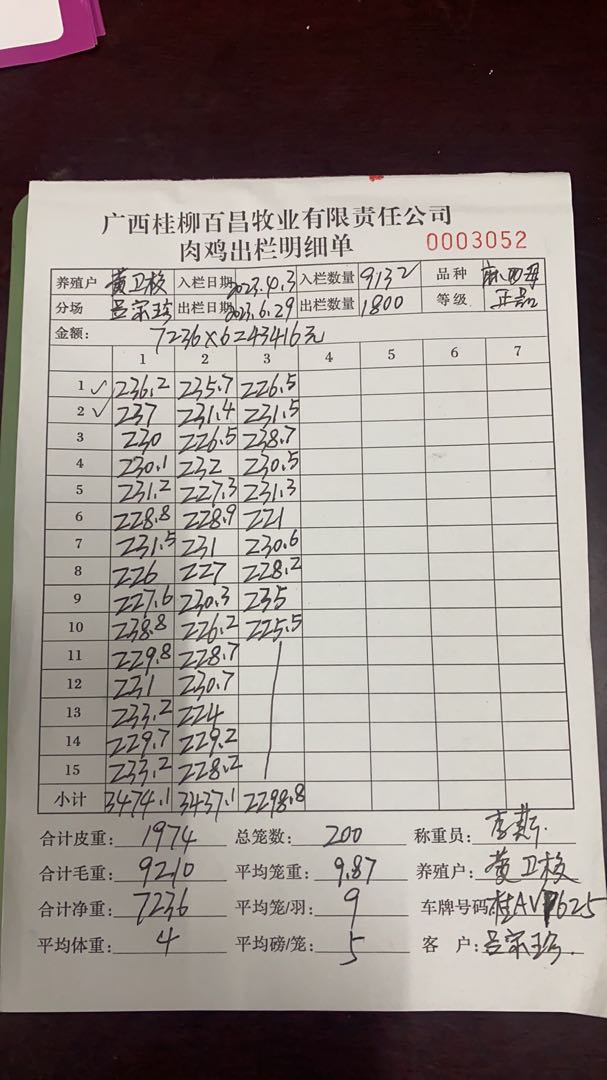 广西桂柳百昌牧业有限责任公司
肉鸡出栏明细单 0003052
养殖户 黄卫校 入栏日期 2023.4.3 入栏数量 9132 品种 麻西母
分场 吕宗珍 出栏日期 2023.6.29 出栏数量 1800 等级 正品
金额: 7236×6=43416元
1 2 3 4 5 6 7
1 ✓ 236.2 235.7 226.5
2 ✓ 237 231.4 231.5
3 230 226.5 238.7
4 230.1 232 230.5
5 231.2 227.3 231.3
6 228.8 228.9 221
7 231.5 231 230.6
8 226 227 228.2
9 227.6 230.3 235
10 238.8 226.2 225.5
11 229.8 228.7
12 231 230.7
13 233.2 224
14 229.7 229.2
15 233.2 228.2
小计 3474.1 3437.1 2298.8
合计皮重: 1974 总笼数: 200 称重员:
合计毛重: 9210 平均笼重: 9.87 养殖户: 黄卫校
合计净重: 7236 平均笼/羽: 9 车牌号码: 桂AV7625
平均体重: 4 平均磅/笼: 5 客户: 吕宗珍